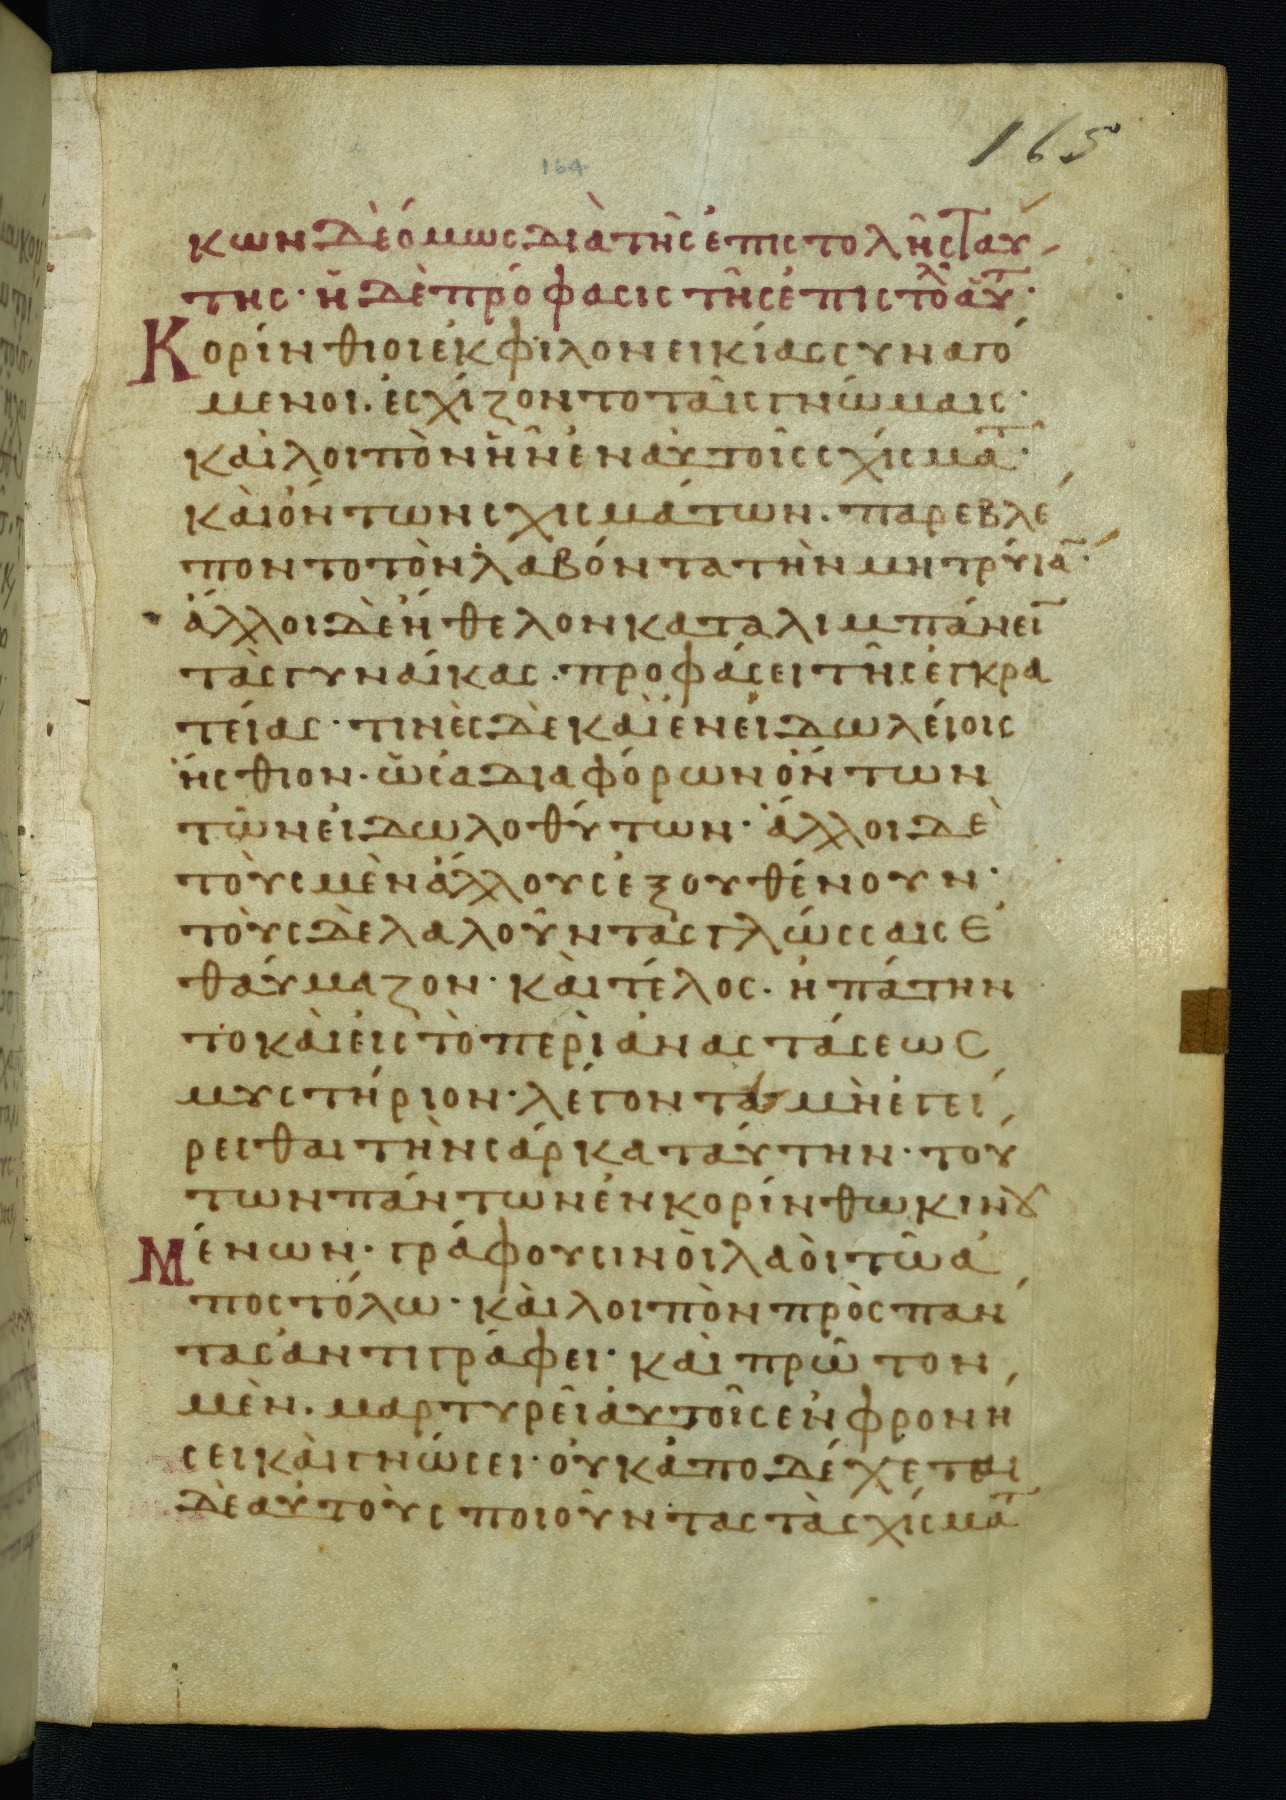 165
164
κων δὲ ὅμως διὰ τῆς ἐπιστολῆς ταύ
της· ἡ δὲ πρόφασις τῆς ἐπιστολ αὕτ·
Κορίνθιοι ἐκ φιλονεικίας συναπτό
μενοι. ἐσχίζοντο ταῖς γνώμαις·
καὶ λοιπὸν ἦν ἐν αὐτοῖς σχίσματ·
καὶ ὄντων σχισμάτων. παρεβλέ
ποντο τὸν λαβόντα τὴν μητρυιά·
ἄλλοι δὲ ἤθελον καταλιμπάνει
τὰς γυναῖκας. προφάσει τῆς ἐγκρα
τείας· τινὲς δὲ καὶ ἐν εἰδωλείοις
ἤσθιον. ὡς ἀδιαφόρων ὄντων
τῶν εἰδωλοθύτων· ἄλλοι δὲ
τοὺς μὲν ἄλλους ἐξουθένουν·
τοὺς δὲ λαλοῦντας γλώσσαις ἐ
θαύμαζον· καὶ τέλος. ἠπάτην
το καὶ εἰς τὸ περὶ ἀναστάσεως
μυστήριον· λέγοντα μὴ ἐγεί
ρεσθαι τὴν σάρκα ταύτην· τού
των πάντων ἐν κορίνθω κινου
Μένων· γράφουσιν οἱ λαοὶ τῶ ἀ
ποστόλω· καὶ λοιπὸν πρὸς παν
τας ἀντιγράφει· καὶ πρῶτον
μὲν. μαρτυρεῖ αὐτοῖς ἐν φρονή
σει καὶ γνώσει· οὐκ ἀποδέχεται
δὲ αὐτοὺς ποιοῦντας τὰ σχίσματ